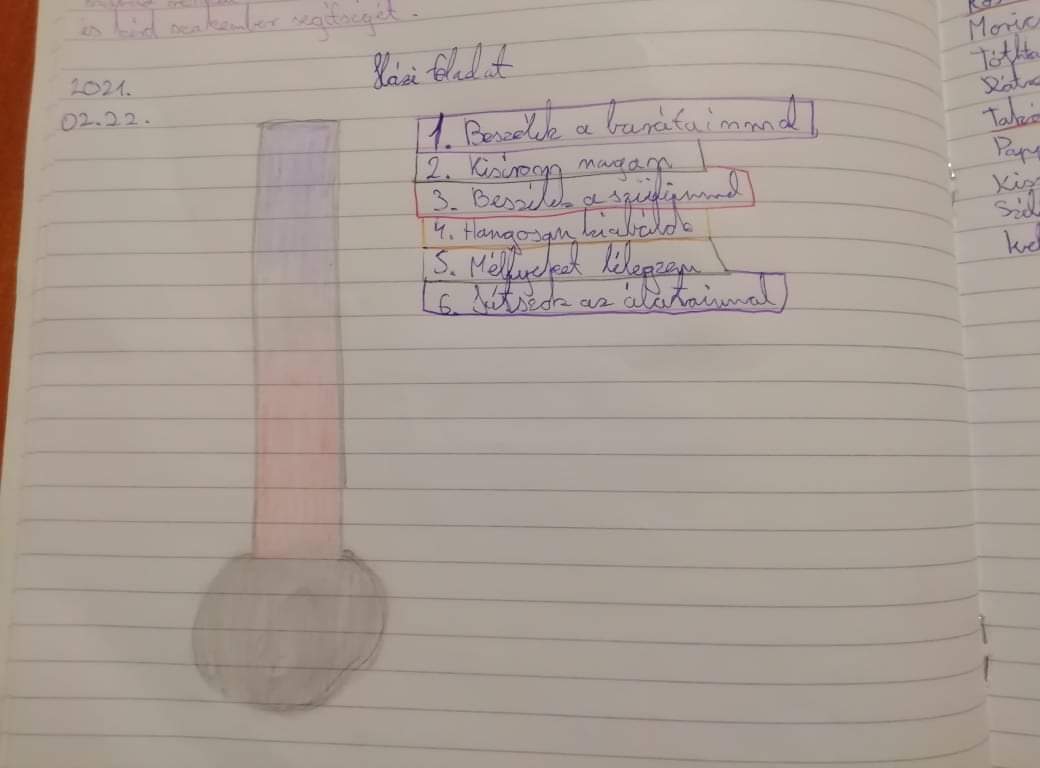 és kérd szakember segítségét.
Házi feladat
2021.
02.22.
1. Beszélek a barátaimmal
2. Kisírom magam
3. Beszélek a szüleimmel
4. Hangosan kiabálok
5. Mélyeket lélegzem
6. Játszok az állataimmal
Moric
Tótht
Kis